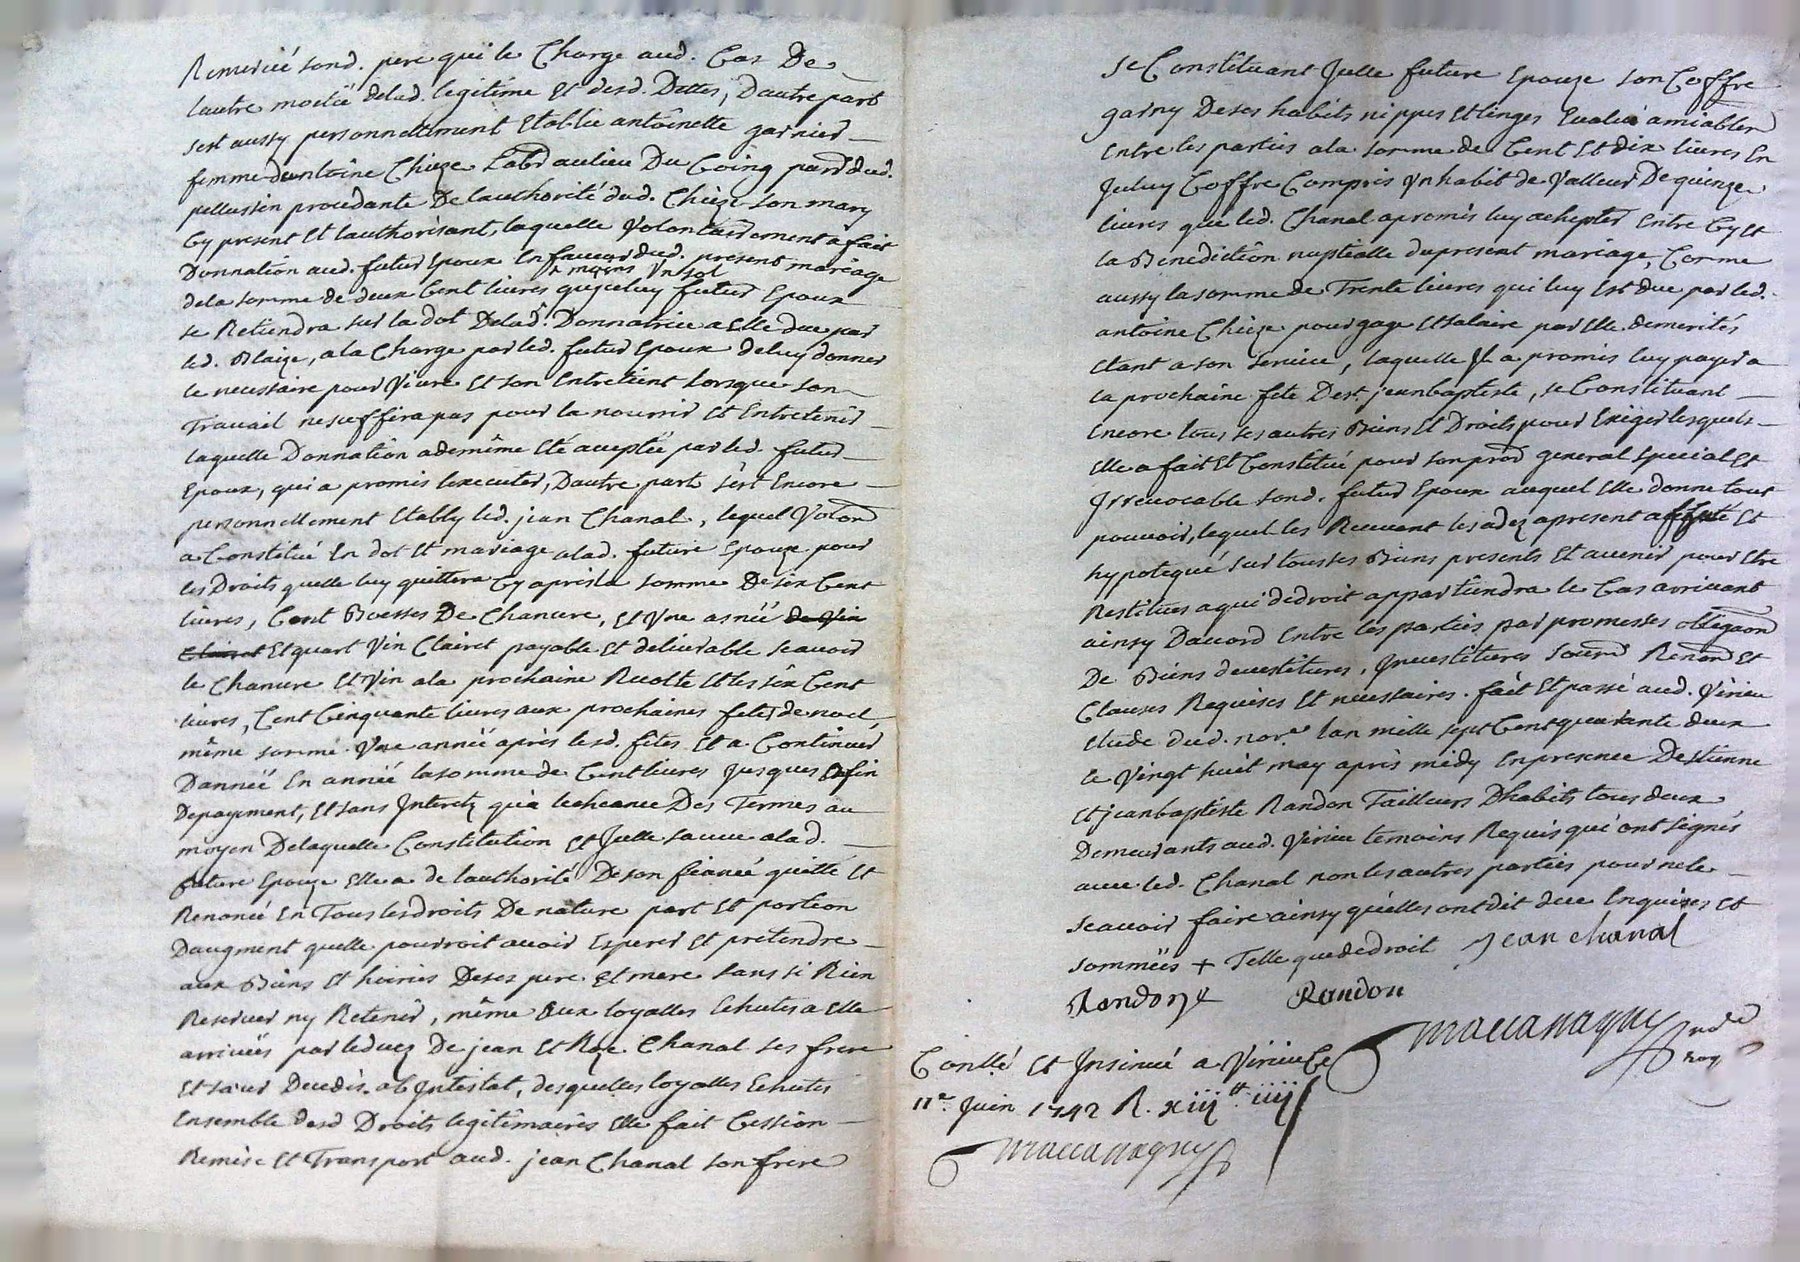 Remercié sond. pere qui le Charge aud. Cas De
lautre moetié delad. legitime Et desd. Dettes, Dautre part
sest aussy personnellement Etablie antoinette garnier
femme dantoine Chieze Labr au lieu Du Going parr. dud.
pellussin procedante De lauthorité dud. Chieze son mary
Cy present Et lauthorisant, laquelle Volontairement a fait
Donnation aud. futur Epoux En faveur dud. present mariage
moins Un sol
dela somme de deux Cent livres que luy futur Epoux
se Retiendra sur la dot Delad. Donnatrice a Elle due par
led. Blaize, ala Charge par led. futur Epoux deluy donner
le necessaire pour Vivre Et son Entretient lorsque son
Travail ne suffira pas pour la nourrir Et Entretenir
laquelle Donnation a demême Eté aceptée par led. futur
Epoux, qui a promis lexecuter, Dautre part s'est Encore
personnellement Etably led. jean Chanal, lequel Volonr
a Constitué En dot Et mariage alad. future Epouze pour
les Droits quelle luy quittera Cy apris la somme De six Cent
livres, Cent Boesses De Chanvre, Et Une asnéé de Vin
Clairet Et quart Vin Clairet payable Et delivrable sçavoir
le Chanvre Et Vin ala prochaine Recolte Et les six Cent
livres, Cent Cinquante livres aux prochaines fetes de noel,
même somme Une année aprés lesd. fêtes Et a Continuer
Dannéé En année la somme de Cent livres jusques Enfin
Depayement, Et sans Interetz qu'a lecheance Des Termes au
moyen Delaquelle Constitution Et Icelle sauve alad.
future Epouze Elle a de lauthorité De son fiancé quitté Et
Renoncé En Tous les droits De nature part Et portion
Daugment quelle pourroit avoir Esperer Et pretendre
aux Biens Et hoiries Deses pere Et mere sans si Rien
Reserver ny Retenir, même aux loyalles Echutes a Elle
arrivéés par le decez De jean Et Roze Chanal ses frere
Et sœur Decedés ab Intestat, desquelles loyalles Echutes
Ensemble desd Droits legitimaires Elle fait Cession
Remise Et Transport aud. jean Chanal son frere
se Constituant Icelle future Epouze son Coffre
garny De ses habits nippes Et linges Evalué amiablem
Entre les parties ala somme de Cent Et dix livres En
Iceluy Coffre Compris Un habit de Valleur De quinze
livres que led. Chanal a promis luy achepter Entre Cy Et
la Benediction nuptialle dupresent mariage, Comme
aussy la somme de Trente livres qui luy Est due par led.
antoine Chieze pour gage Et salaire par Elle demerités
Etant a son service, laquelle Il a promis luy payer a
la prochaine fete De st. jean baptiste, se Constituant
Encore tous ses autres Biens Et Droits pour Exiger lesquels
Elle a fait Et Constitué pour son procr general special Et
Irrevocable sond. futur Epoux auquel Elle donne tout
pouvoir, lequel les Recevant les a dez apresent affecté Et
hypotequé sur tous ses Biens presents Et avenir pour Etre
Restitues a qui de droit appartiendra le Cas arrivant
ainsy Daccord Entre les parties par promesses obligaon
De Biens devestitures, Investitures soumn Renonn Et
Clauses Requises Et necessaires. fait Et passé aud. Virieu
Etude dud. nore. lan mille sept Cent quarante deux
le Vingt huit may aprés midy En presence D'estienne
Et jean baptiste Randon Tailleurs D'habits tous deux
Demeurants aud. Virieu temoins Requis qui ont signés
avec led. Chanal non les autres parties pour ne le
sçavoir faire ainsy quélles ont dit due Enquizes Et
sommées + Telle que de droit Jean chanal
Randon Randon
Maccanagny
Conllé Et Insinué a Virieu Ce
11e. Juin 1742 R. xiij tt iiij s
Maccanagny